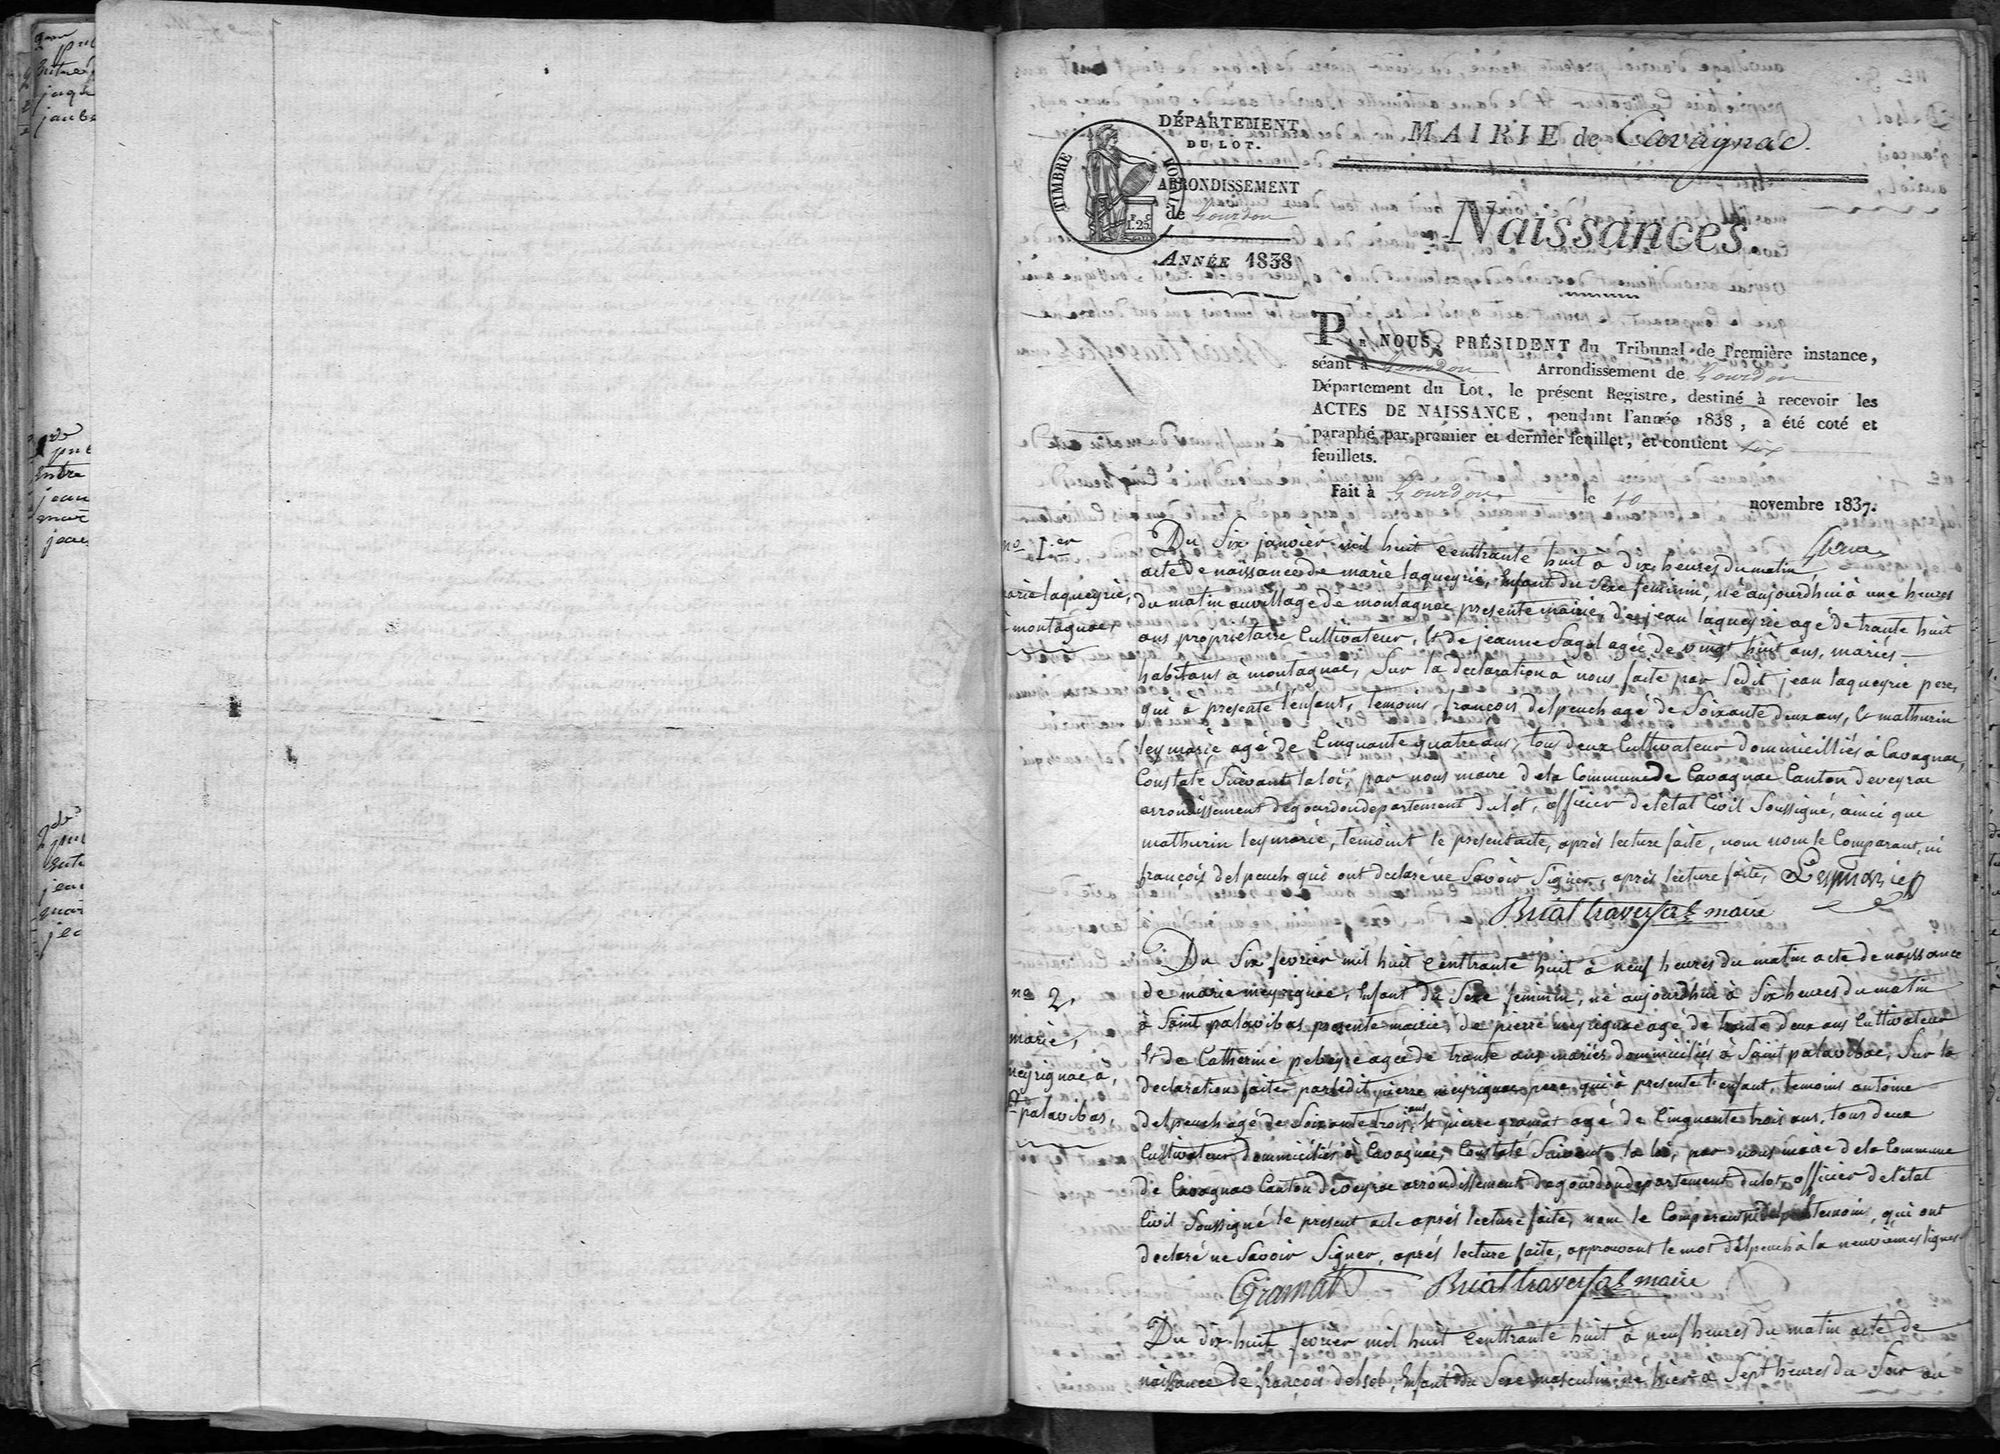 DÉPARTEMENT
DU LOT.
TIMBRE ROYAL
F. C.
1. 25.
ARRONDISSEMENT
de Gourdon
ANNÉE 1838
MAIRIE de Cavagnac.
Naissances
PAR NOUS, PRÉSIDENT du Tribunal de Première instance,
séant à Gourdon Arrondissement de Gourdon
Département du Lot, le présent Registre, destiné à recevoir les
ACTES DE NAISSANCE, pendant l'année 1838, a été coté et
paraphé par premier et dernier feuillet, et contient six
feuillets.
Fait à Gourdon, le 10 novembre 1837.
no 1.er
marie laqueyrie,
à montagnac,
Du Six janvier mil huit centtrante huit à dix heures du matin
acte de naissance de marie laqueyrie, Enfant du Sexe feminin, né aujourdhui à une heures
du matin au village de montagnac presente mairie, de jean laqueyrie agé de trante huit
ans propriétaire Cultivateur, Et de jeanne Sagol agée de vingt huit ans, mariés
habitans à montagnac, Sur la déclaration à nous faite par ledit jean laqueyrie pere,
qui à presenté l'enfant, temoins françois delpeuch agé de Soixante deux ans, Et mathurin
leymarie agé de Cinquante quatre ans, tous deux Cultivateur domicilliés à Cavagnac,
Constaté Suivant la loi, par nous maire dela Commune de Cavagnac Canton de veyrac
arrondissement de gourdon departement du lot, officier de l'état Civil Soussigné, ainci que
mathurin leymarie, temoint le present acte, après lecture faite, nom nom le Comparant, ni
françois delpeuch qui ont declaré ne Savoir Signer, après lecture faite, Leymarie
Brial traversal maire
no 2,
marie,
meyrignac a,
St palavibas,
Du Six fevrier mil huit centtrante huit à neuf heures du matin acte de naissance
de marie meyrignac, Enfant du Sexe feminin, né aujourdhui à Six heures du matin
à Saint palavibas presente mairie, de pierre meyrignac agé de trante deux ans Cultivateur
Et de Catherine pebeyre agée de trante ans mariés domiciliés à Saint palavibas, Sur la
declaration faite par ledit pierre meyrignac pere qui à presenté l'enfant, temoins antoine
delpeuch agé de Soixante trois ans, Et pierre gramat agé de Cinquante trois ans, tous deux
Cultivateur domiciliés à Cavagnac, Constaté Suivant la loi, par nous maire dela Commune
de Cavagnac Canton de veyrac arrondissement de gourdon departement du lot, officier de l'état
Civil Soussigné le present acte après lecture faite, nom le Comparant ni delpeuch temoins, qui ont
declaré ne Savoir Signer, après lecture faite, approuvant le mot delpeuch à la neuviemes lignes
Gramat Brial traversal maire
Du dix huit fevrier mil huit centtrante huit à neuf heures du matin acte de
naissance de françois delsol, Enfant du Sexe masculin né hier à Sept heures du Soir au